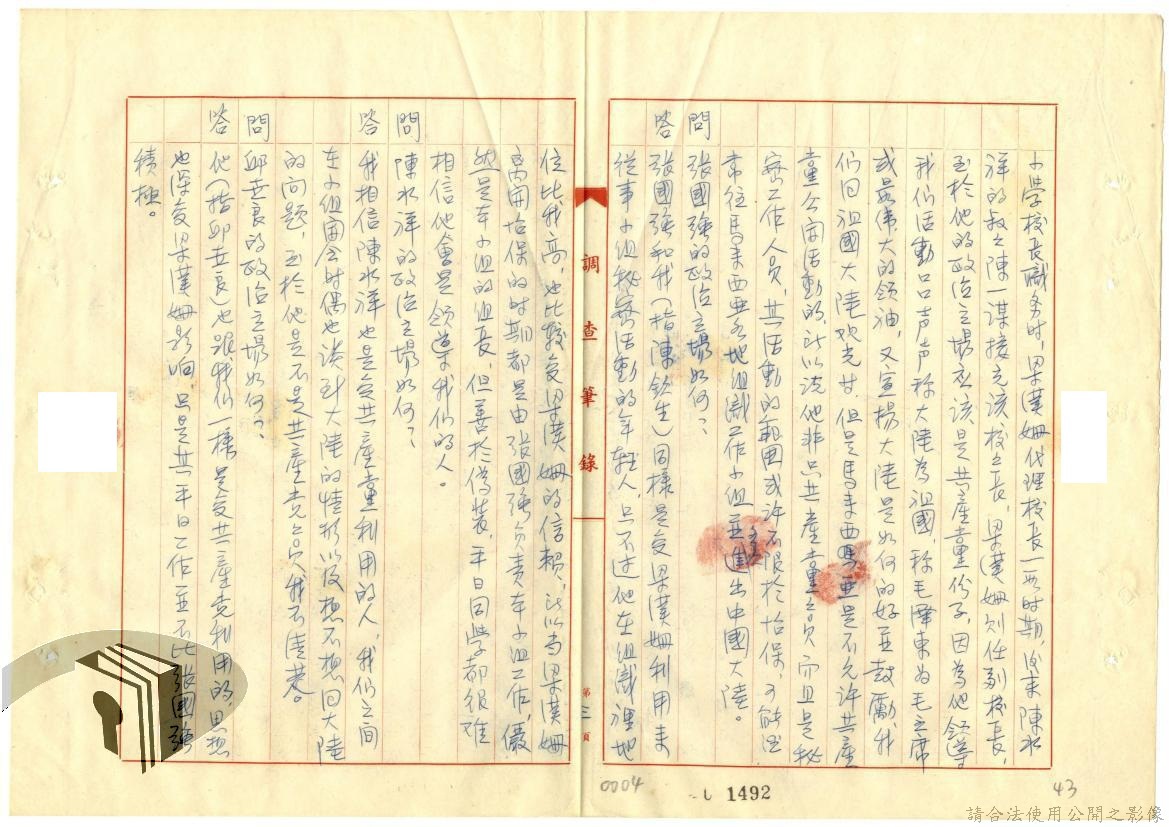 小學校長職务时，梁漢姗代理校長一两时期，後來陳水
祥的叔々陳一謀接充該校々長，梁漢姗则任副校長，
至於他的政治立場应该是共產黨份子，因為他領導
我们活動口口声声称大陸為祖國，称毛澤東為毛主席
或最偉大的領油，又宣揚大陸是如何的好並鼓勵我
们回祖國大陸观光廿，但是馬來西馬亜是不允许共產
黨公開活動的，所以说他非只共產黨々員而且是秘
密工作人员，其活動的範围或许不限於怡保，可能
常往馬來西亜各地组識工作小组並進出中國大陸。
問 張國強的政治立場如何？
答 張國強和我（指陳欽生）同様是受梁漢姗利用來
從事小组秘密活動的年輕人，只不过他在组識裡地
調查筆錄
第三頁
位比我高，也比較受梁漢姗的信賴，所以当梁漢姗
离開怡保的时期都是由張國強负责本小组工作，儼
然是本小组的组長，但善於偽裝，平日同学都很难
相信他會是領導我们的人。
問 陳水祥的政治立場如何？
答 我相信陳水祥也是受共產黨利用的人，我们之间
在小组開会时偶也谈到大陸的情形以及想不想回大陸
的问题，至於他是不是共產党々员我不清楚。
問 邱世良的政治立場如何？
答 他（指邱世良）也跟我们一樣是受共產党利用的，思想
也深受梁漢姗影响，只是其平日工作並不比張國強
積極。
0004
1492
43
請合法使用公開之影像